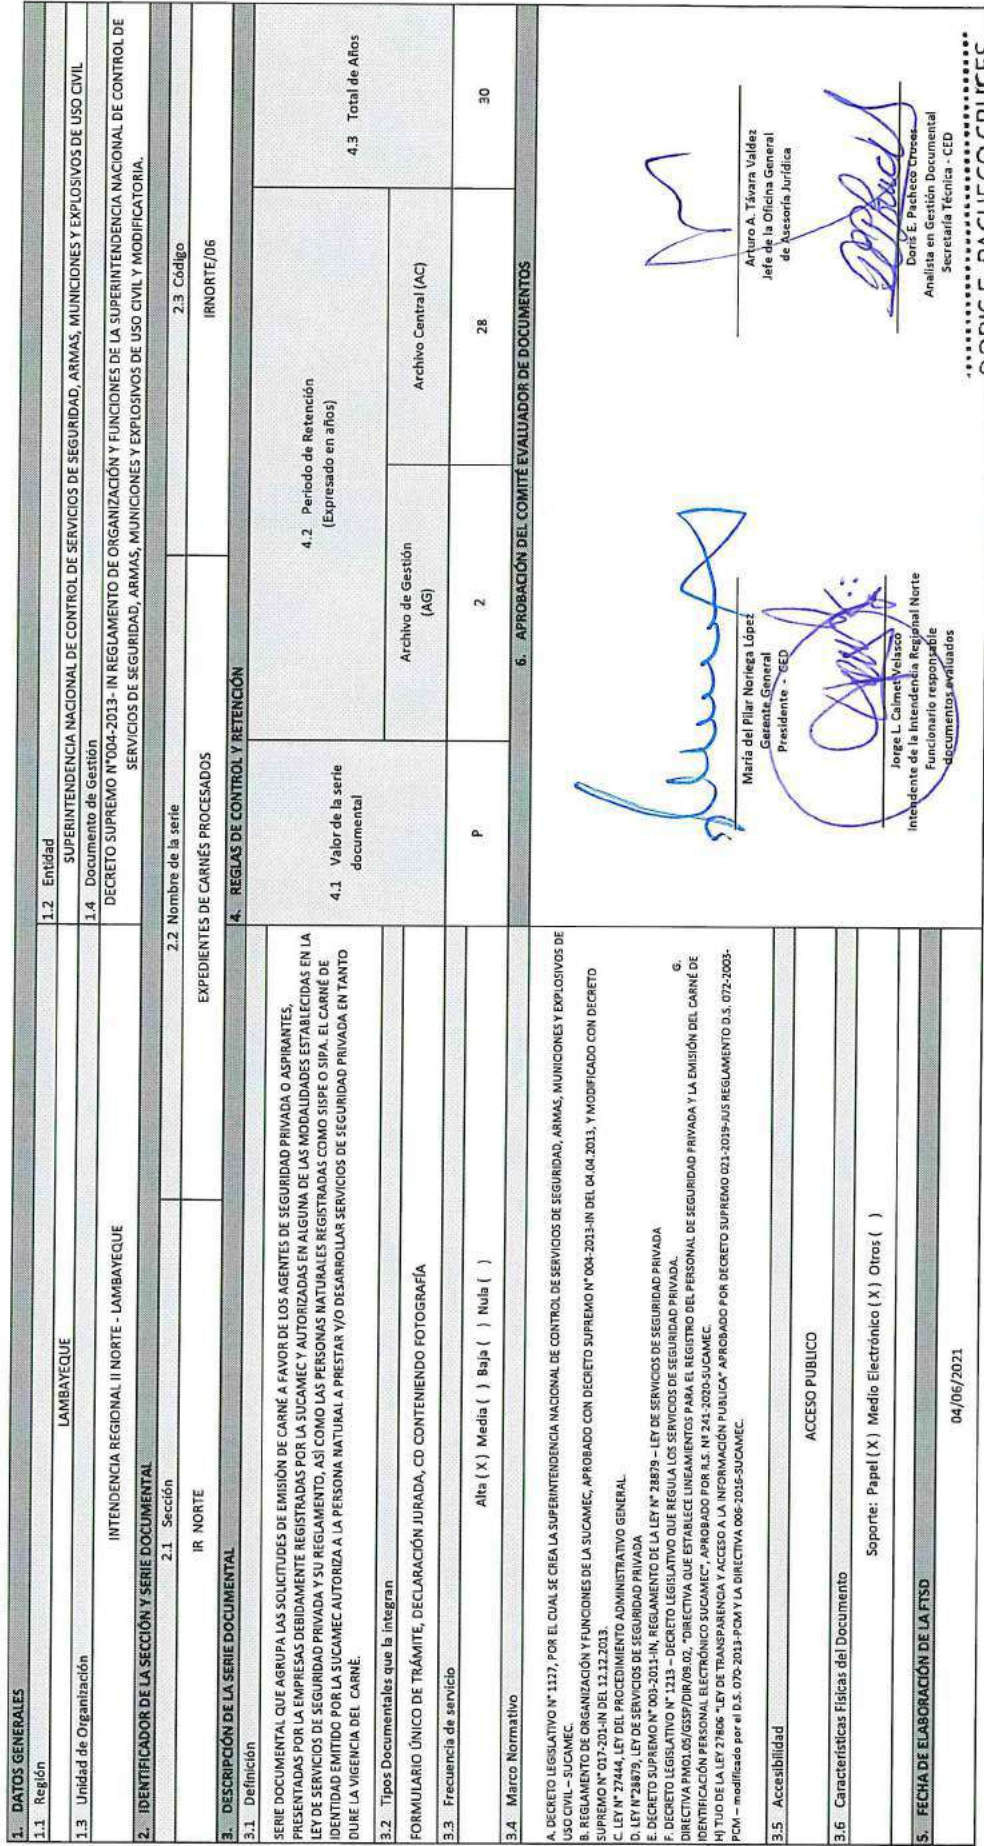 1. DATOS GENERALES
1.1 Región
LAMBAYEQUE
1.2 Entidad
SUPERINTENDENCIA NACIONAL DE CONTROL DE SERVICIOS DE SEGURIDAD, ARMAS, MUNICIONES Y EXPLOSIVOS DE USO CIVIL
1.3 Unidad de Organización
INTENDENCIA REGIONAL II NORTE - LAMBAYEQUE
1.4 Documento de Gestión
DECRETO SUPREMO N°004-2013- IN REGLAMENTO DE ORGANIZACIÓN Y FUNCIONES DE LA SUPERINTENDENCIA NACIONAL DE CONTROL DE
SERVICIOS DE SEGURIDAD, ARMAS, MUNICIONES Y EXPLOSIVOS DE USO CIVIL Y MODIFICATORIA.
2. IDENTIFICADOR DE LA SECCIÓN Y SERIE DOCUMENTAL
2.1 Sección
IR NORTE
2.2 Nombre de la serie
EXPEDIENTES DE CARNÉS PROCESADOS
2.3 Código
IRNORTE/06
3. DESCRIPCIÓN DE LA SERIE DOCUMENTAL
3.1 Definición
SERIE DOCUMENTAL QUE AGRUPA LAS SOLICITUDES DE EMISIÓN DE CARNÉ A FAVOR DE LOS AGENTES DE SEGURIDAD PRIVADA O ASPIRANTES,
PRESENTADAS POR LA EMPRESAS DEBIDAMENTE REGISTRADAS POR LA SUCAMEC Y AUTORIZADAS EN ALGUNA DE LAS MODALIDADES ESTABLECIDAS EN LA
LEY DE SERVICIOS DE SEGURIDAD PRIVADA Y SU REGLAMENTO, ASÍ COMO LAS PERSONAS NATURALES REGISTRADAS COMO SISPE O SIPA. EL CARNÉ DE
IDENTIDAD EMITIDO POR LA SUCAMEC AUTORIZA A LA PERSONA NATURAL A PRESTAR Y/O DESARROLLAR SERVICIOS DE SEGURIDAD PRIVADA EN TANTO
DURE LA VIGENCIA DEL CARNÈ.
3.2 Tipos Documentales que la integran
FORMULARIO ÚNICO DE TRÁMITE, DECLARACIÓN JURADA, CD CONTENIENDO FOTOGRAFÍA
3.3 Frecuencia de servicio
Alta ( X ) Media ( ) Baja ( ) Nula ( )
3.4 Marco Normativo
A. DECRETO LEGISLATIVO N° 1127, POR EL CUAL SE CREA LA SUPERINTENDENCIA NACIONAL DE CONTROL DE SERVICIOS DE SEGURIDAD, ARMAS, MUNICIONES Y EXPLOSIVOS DE
USO CIVIL – SUCAMEC.
B. REGLAMENTO DE ORGANIZACIÓN Y FUNCIONES DE LA SUCAMEC, APROBADO CON DECRETO SUPREMO N° 004-2013-IN DEL 04.04.2013, Y MODIFICADO CON DECRETO
SUPREMO N° 017-201-IN DEL 12.12.2013.
C. LEY N° 27444, LEY DEL PROCEDIMIENTO ADMINISTRATIVO GENERAL.
D. LEY N°28879, LEY DE SERVICIOS DE SEGURIDAD PRIVADA
E. DECRETO SUPREMO N° 003-2011-IN, REGLAMENTO DE LA LEY N° 28879 – LEY DE SERVICIOS DE SEGURIDAD PRIVADA
F. DECRETO LEGISLATIVO N° 1213 – DECRETO LEGISLATIVO QUE REGULA LOS SERVICIOS DE SEGURIDAD PRIVADA. G.
DIRECTIVA PM01.05/GSSP/DIR/09.02, "DIRECTIVA QUE ESTABLECE LINEAMIENTOS PARA EL REGISTRO DEL PERSONAL DE SEGURIDAD PRIVADA Y LA EMISIÓN DEL CARNÉ DE
IDENTIFICACIÓN PERSONAL ELECTRÓNICO SUCAMEC", APROBADO POR R.S. Nª 241-2020-SUCAMEC.
H) TUO DE LA LEY 27806 "LEY DE TRANSPARENCIA Y ACCESO A LA INFORMACIÓN PUBLICA" APROBADO POR DECRETO SUPREMO 021-2019-JUS REGLAMENTO D.S. 072-2003-
PCM – modificado por el D.S. 070-2013-PCM Y LA DIRECTIVA 006-2016-SUCAMEC.
3.5 Accesibilidad
ACCESO PUBLICO
3.6 Características Físicas del Documento
Soporte: Papel ( X ) Medio Electrónico ( X ) Otros ( )
5. FECHA DE ELABORACIÓN DE LA FTSD
04/06/2021
4. REGLAS DE CONTROL Y RETENCIÓN
4.1 Valor de la serie
documental
4.2 Periodo de Retención
(Expresado en años)
4.3 Total de Años
Archivo de Gestión
(AG)
Archivo Central (AC)
P 2 28 30
6. APROBACIÓN DEL COMITÉ EVALUADOR DE DOCUMENTOS
María del Pilar Noriega López
Gerente General
Presidente - CED
Arturo A. Távara Valdez
Jefe de la Oficina General
de Asesoría Jurídica
Jorge L. Calmet Velasco
Intendente de la Intendencia Regional Norte
Funcionario responsable
documentos evaluados
Doris E. Pacheco Cruces
Analista en Gestión Documental
Secretaría Técnica - CED
DORIS E. PACHECO CRUCES